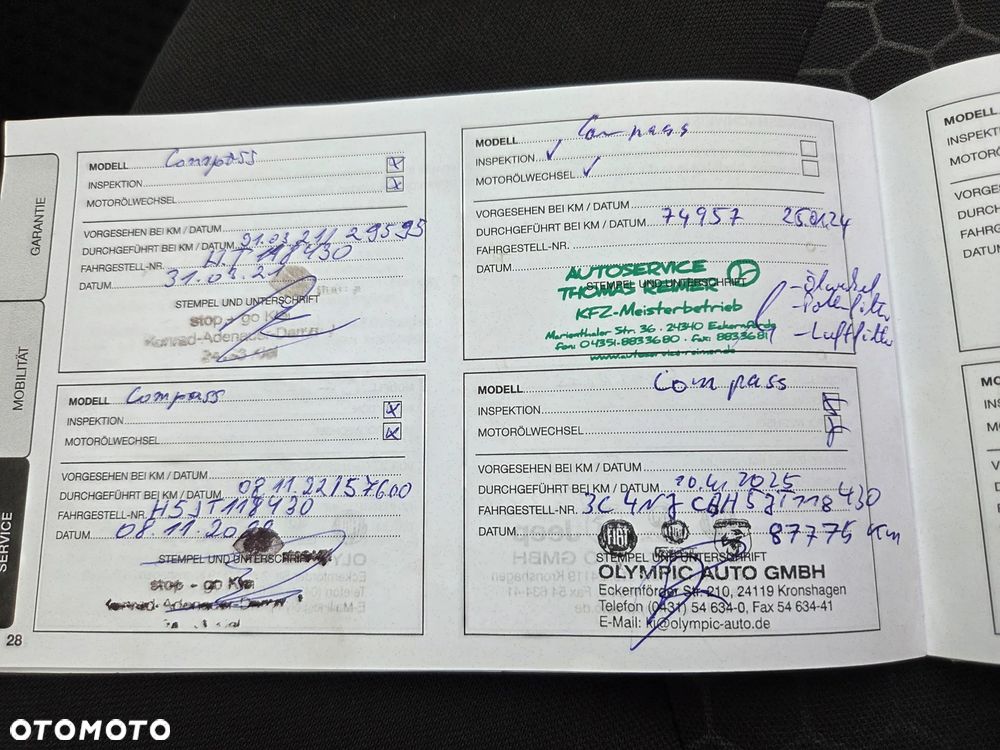 GARANTIE
MOBILITÄT
SERVICE
28
MODELL Compass
INSPEKTION
MOTORÖLWECHSEL
VORGESEHEN BEI KM / DATUM
DURCHGEFÜHRT BEI KM / DATUM 31.03.21/ 29595
FAHRGESTELL-NR. HJT118430
DATUM 31.03.21
STEMPEL UND UNTERSCHRIFT
stop + go Kiel
Konrad-Adenauer-Damm
MODELL Compass
INSPEKTION
MOTORÖLWECHSEL
VORGESEHEN BEI KM / DATUM
DURCHGEFÜHRT BEI KM / DATUM 08.11.22/57600
FAHRGESTELL-NR. H5JT118430
DATUM 08.11.2022
STEMPEL UND UNTERSCHRIFT
stop - go Kiel
Konrad-Adenauer-Damm
MODELL Compass
INSPEKTION
MOTORÖLWECHSEL
VORGESEHEN BEI KM / DATUM
DURCHGEFÜHRT BEI KM / DATUM 74957 25.01.24
FAHRGESTELL-NR.
DATUM
STEMPEL UND UNTERSCHRIFT
AUTOSERVICE
THOMAS REIMER
KFZ-Meisterbetrieb
Marienthaler Str. 36 · 24340 Eckernförde
fon: 04351-8833680 · fax: 8833681
www.autoservice-reimer.de
- Ölwechsel
- Pollenfilter
- Luftfilter
MODELL Compass
INSPEKTION
MOTORÖLWECHSEL
VORGESEHEN BEI KM / DATUM
DURCHGEFÜHRT BEI KM / DATUM 2025
FAHRGESTELL-NR. 3C4NJCBH5JT118430
DATUM 87775 Km
FIAT
STEMPEL UND UNTERSCHRIFT
OLYMPIC AUTO GMBH
Eckernförder Str. 210, 24119 Kronshagen
Telefon (0431) 54 634-0, Fax 54 634-41
E-Mail: ki@olympic-auto.de
MODELL
INSPEKTI
MOTORÖ
VORGE
DURC
FAHRG
DATU
MODELL
INS
MO
OTOMOTO